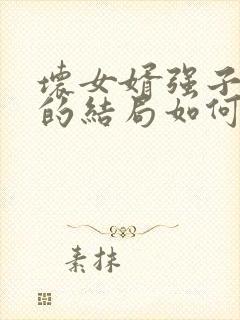 壞女婿强子
的結局如何
素抹